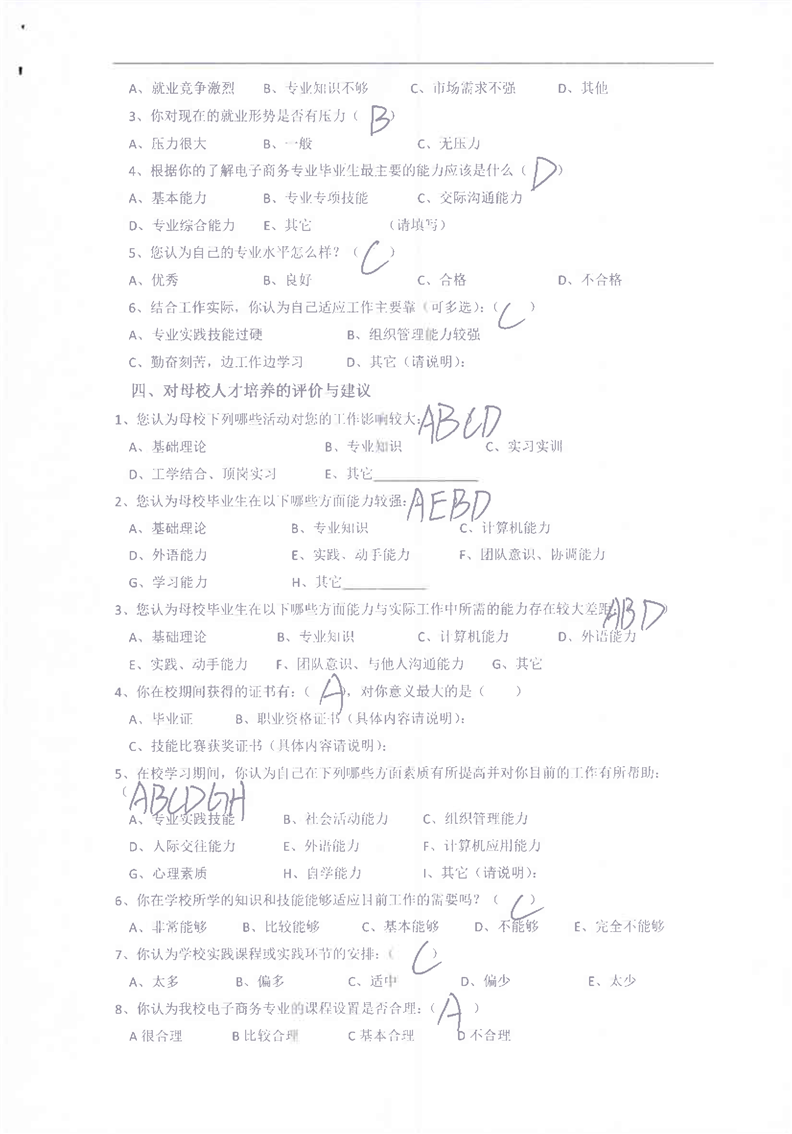 A、就业竞争激烈 B、专业知识不够 C、市场需求不强 D、其他
3、你对现在的就业形势是否有压力（ B ）
A、压力很大 B、一般 C、无压力
4、根据你的了解电子商务专业毕业生最主要的能力应该是什么（ D ）
A、基本能力 B、专业专项技能 C、交际沟通能力
D、专业综合能力 E、其它 （请填写）
5、您认为自己的专业水平怎么样？（ C ）
A、优秀 B、良好 C、合格 D、不合格
6、结合工作实际，你认为自己适应工作主要靠（可多选）：（ C ）
A、专业实践技能过硬 B、组织管理能力较强
C、勤奋刻苦，边工作边学习 D、其它（请说明）：
四、对母校人才培养的评价与建议
1、您认为母校下列哪些活动对您的工作影响较大：ABCD
A、基础理论 B、专业知识 C、实习实训
D、工学结合、顶岗实习 E、其它__________
2、您认为母校毕业生在以下哪些方面能力较强：AEBD
A、基础理论 B、专业知识 C、计算机能力
D、外语能力 E、实践、动手能力 F、团队意识、协调能力
G、学习能力 H、其它________
3、您认为母校毕业生在以下哪些方面能力与实际工作中所需的能力存在较大差距：ABD）
A、基础理论 B、专业知识 C、计算机能力 D、外语能力
E、实践、动手能力 F、团队意识、与他人沟通能力 G、其它
4、你在校期间获得的证书有：（ A ），对你意义最大的是（ ）
A、毕业证 B、职业资格证书（具体内容请说明）：
C、技能比赛获奖证书（具体内容请说明）：
5、在校学习期间，你认为自己在下列哪些方面素质有所提高并对你目前的工作有所帮助：
（ABCDGH
A、专业实践技能 B、社会活动能力 C、组织管理能力
D、人际交往能力 E、外语能力 F、计算机应用能力
G、心理素质 H、自学能力 I、其它（请说明）：
6、你在学校所学的知识和技能能够适应目前工作的需要吗？（ C ）
A、非常能够 B、比较能够 C、基本能够 D、不能够 E、完全不能够
7、你认为学校实践课程或实践环节的安排：（ C ）
A、太多 B、偏多 C、适中 D、偏少 E、太少
8、你认为我校电子商务专业的课程设置是否合理：（ A ）
A 很合理 B 比较合理 C 基本合理 D 不合理